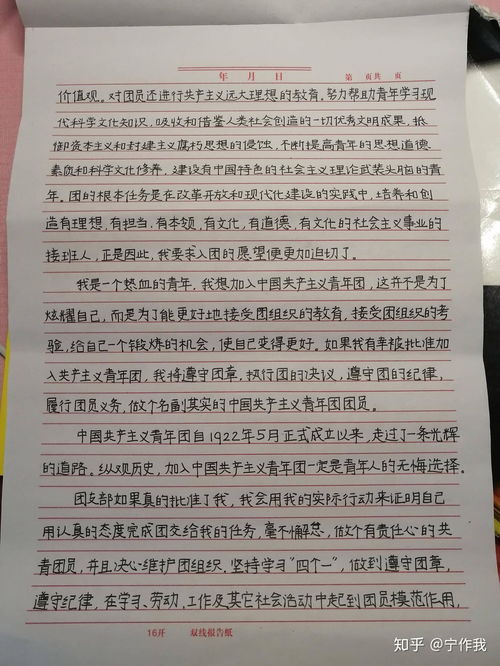 年 月 日
第 页共 页
价值观。对团员还进行共产主义远大理想的教育。努力帮助青年学习现
代科学文化知识，吸收和借鉴人类社会创造的一切优秀文明成果，抵
御资本主义和封建主义腐朽思想的侵蚀，不断提高青年的思想道德
素质和科学文化修养，建设有中国特色的社会主义理论武装头脑的青
年。团的根本任务是在改革开放和现代化建设的实践中，培养和创
造有理想，有担当，有本领，有文化，有道德，有文化的社会主义事业的
接班人，正是因此，我要求入团的愿望便更加迫切了。
我是一个热血的青年，我想加入中国共产主义青年团，这并不是为了
炫耀自己，而是为了能更好地接受团组织的教育，接受团组织的考
验，给自己一个锻炼的机会，使自己变得更好。如果我有幸被批准加
入共产主义青年团，我将遵守团章，执行团的决议，遵守团的纪律，
履行团员义务，做个名副其实的中国共产主义青年团团员。
中国共产主义青年团自1922年5月正式成立以来，走过了一条光辉
的道路。纵观历史，加入中国共产主义青年团一定是青年人的无悔选择。
团支部如果真的批准了我，我会用我的实际行动来证明自己
用认真的态度完成团交给我的任务，毫不懈怠，做个有责任心的共
青团员，并且决心维护团组织，坚持学习“四个一”，做到遵守团章，
遵守纪律，在学习、劳动、工作及其它社会活动中起到团员模范作用，
16开 双线报告纸
知乎 @宁作我